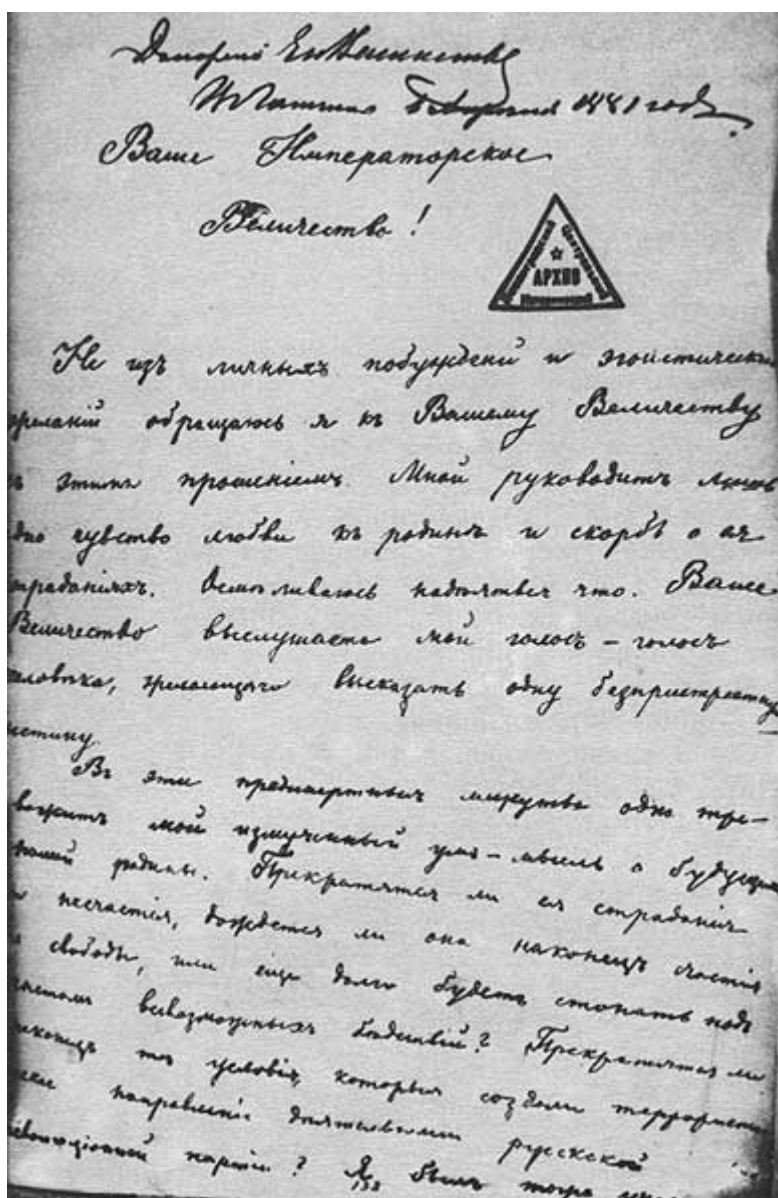 Ваше Императорское
Величество!
АРХИВ
Не изъ личныхъ побужденій и эгоистическихъ
желаній обращаюсь я къ Вашему Величеству
съ этимъ прошеніемъ. Мной руководитъ лишь
одно чувство любви къ родинѣ и скорбь о ея
страданіяхъ. Осмѣливаюсь надѣяться что. Ваше
Величество выслушаете мой голосъ – голосъ
человѣка, желающаго высказать одну безпристрастную
истину
Въ эти предсмертныя минуты одно тре-
вожитъ мой измученный умъ – мысль о будущемъ
моей родины. Прекратятся ли ея страданія
и несчастія, дождется ли она наконецъ счастія
и свободы, или еще долго будетъ стонать подъ
всевозможныхъ бѣдствій? Прекратятся ли
наконецъ тѣ условія, которыя создали террористи
направленіе дѣятельности русской
революціонной партіи? Я былъ тогда